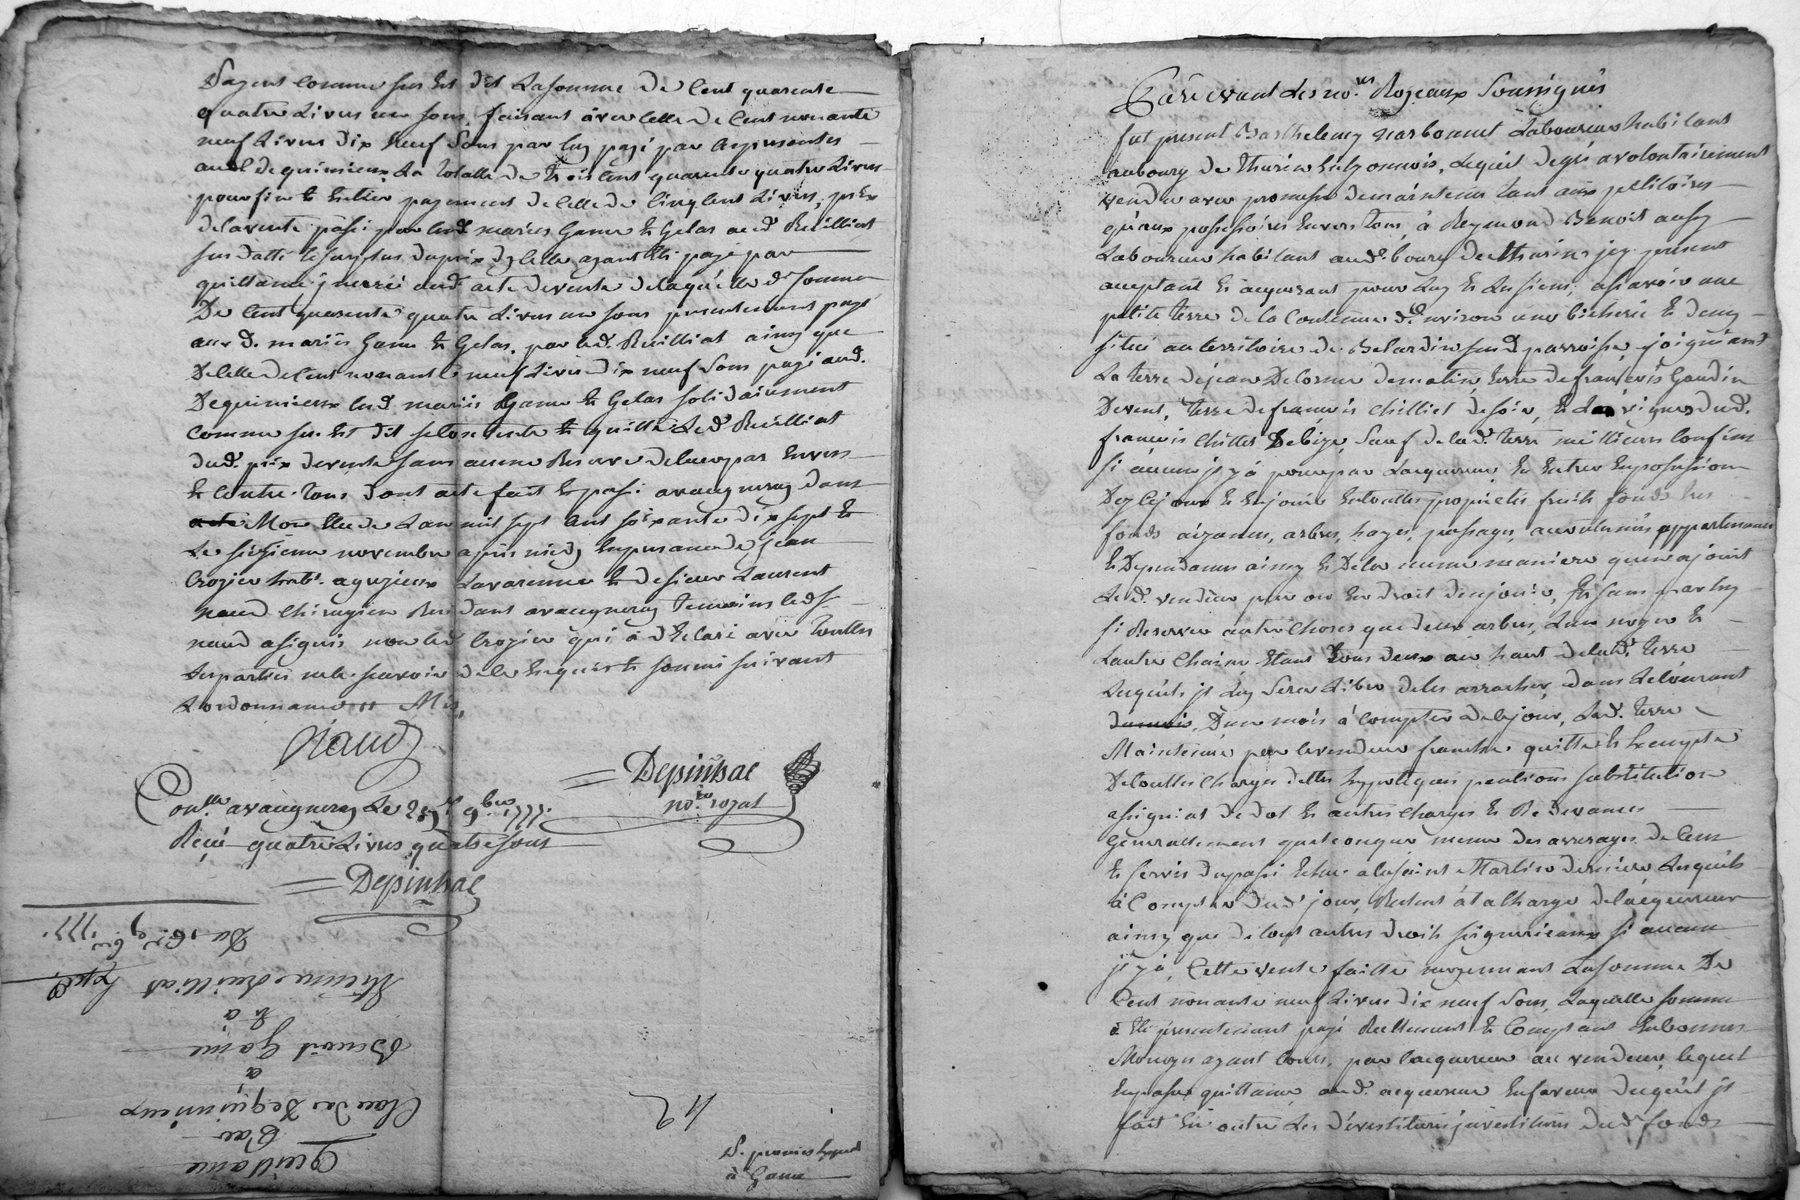 D'agent comme sus Est dit La somme De Cent quarente
quatre Livres un sous, faisant avec Celle de Cent nonante
neuf Livres dix Neuf Sous par luy payé par
aud. dequinsieux La totalle de trois Cent quarente quatre Livres
pour fin Et Entier payement de Celle de Cinq Cent Livres, prix
de la vente passé par lesd. mariés Game Et Gelas aud. Reilliat
sus datté le surplus du prix d'ycelle ayant Eté payé par
quittance inserée aud. acte de vente de laquelle d. somme
De Cent quarente quatre Livres un sous presentement payé
aux d. mariés Game Et Gelas, par led. Reilliat ainsy que
De Celle de Cent nonante neuf Livres dix neuf Sous payé aud.
Dequinsieux lesd. mariés Game Et Gelas solidairement
comme sus Est dit se Contente Et quitte Led. Reilliat
dud. prix de vente sans aucune Reserve de
Et Contre tous Dont acte fait Et passé a vaugneray dans
Mon Etude L'an mil sept Cent soixante dix sept Et
Le sixieme novembre après midy En presence de jean
Crozier habt. a grezieux Lavarenne Et de sieur Laurent
naud Chirugien Residant a vaugneray Temoins led. s.
naud a signé non led. Crozier qui a déclaré avec touttes
Les parties ne le scavoir de ce Enquis Et sommé suivant
L'ordonnance
Naud
Depinhac
no.re royal
Con.llé a vaugneray Le 9.bre 1777.
Reçu quatre Livres quatre sous
Depinhac
Quittance
Par
Claudes Dequinsieux
à
Benoit Game
Et a
Etienne Reilliat
Du 6.e 9.bre 1777.
Expd.
42
à Game
Pardevant Les no.res Royaux Soussignés
fut present Barthelemy narbonnet Laboureur habitant
au bourg de Thurin En Lyonnois, Lequel de gré a volontairement
vendu avec promesse de maintenir tant aux petitoires
qu'aux possessoires Envers tous, à Reymond Benoit aussy
Laboureur habitant aud. bourg de Thurins jcy present
acceptant Et acquerant pour Luy Et Les siens, a sçavoir une
petite terre de la Contenue d'Environ une bicherée Et demy
situé au territoire de Belardin susd. parroisse, joignant
La terre de jean Delorme de matin, terre de francois Gaudin
De vent, terre de francois Chilliet de soir, Et Les vignes dud.
francois Chilliet De bize, Sauf de lad. terre meilleurs Confins
si aucuns jl y à pour par L'acquereur En Entrer En possession
Dez Ce jour Et En jouir En touttes proprietés fruits fonds tres
fonds aizances, arbres, hayes, passages, accoutumés appartenances
Et Dependances ainsy Et De la meme maniere qu'en a jouit
Led. vendeur pu ou Eu droit d'en jouir, Et sans par luy
si Reserver autre Choses que deux arbres, L'un noyer Et
L'autre Chaine Etant tous deux au haut de lad. terre
Lesquels jl Luy Sera Libre de les arracher, dans Le Courant
D'un mois à Compter de Ce jour, Lad. terre
Maintenue par le vendeur franche quitte Et Exempte
De touttes Charges dettes hypoteques pentions substitution
assignat de dot Et autres Charges Et Redevances
Generallement quelconque meme des arrerages de Cens
Et servis du passé a La saint Martin derniere Lesquels
à Compter dud. jour, Restent à la Charge de l'acquereur
ainsy que de tous autres droits seigneuriaux si aucun
jl y à, Cette vente faitte moyennant La somme De
Cent nonante neuf Livres dix neuf Sous, Laquelle somme
à Eté presentement payé Reellement Et Comptant En bonnes
Monoyes ayant Cours, par l'acquereur au vendeur, lequel
En passe quittance aud. acquereur En faveur duquel jl
fait En outre Les dévestitures jnvestitures dud. fonds